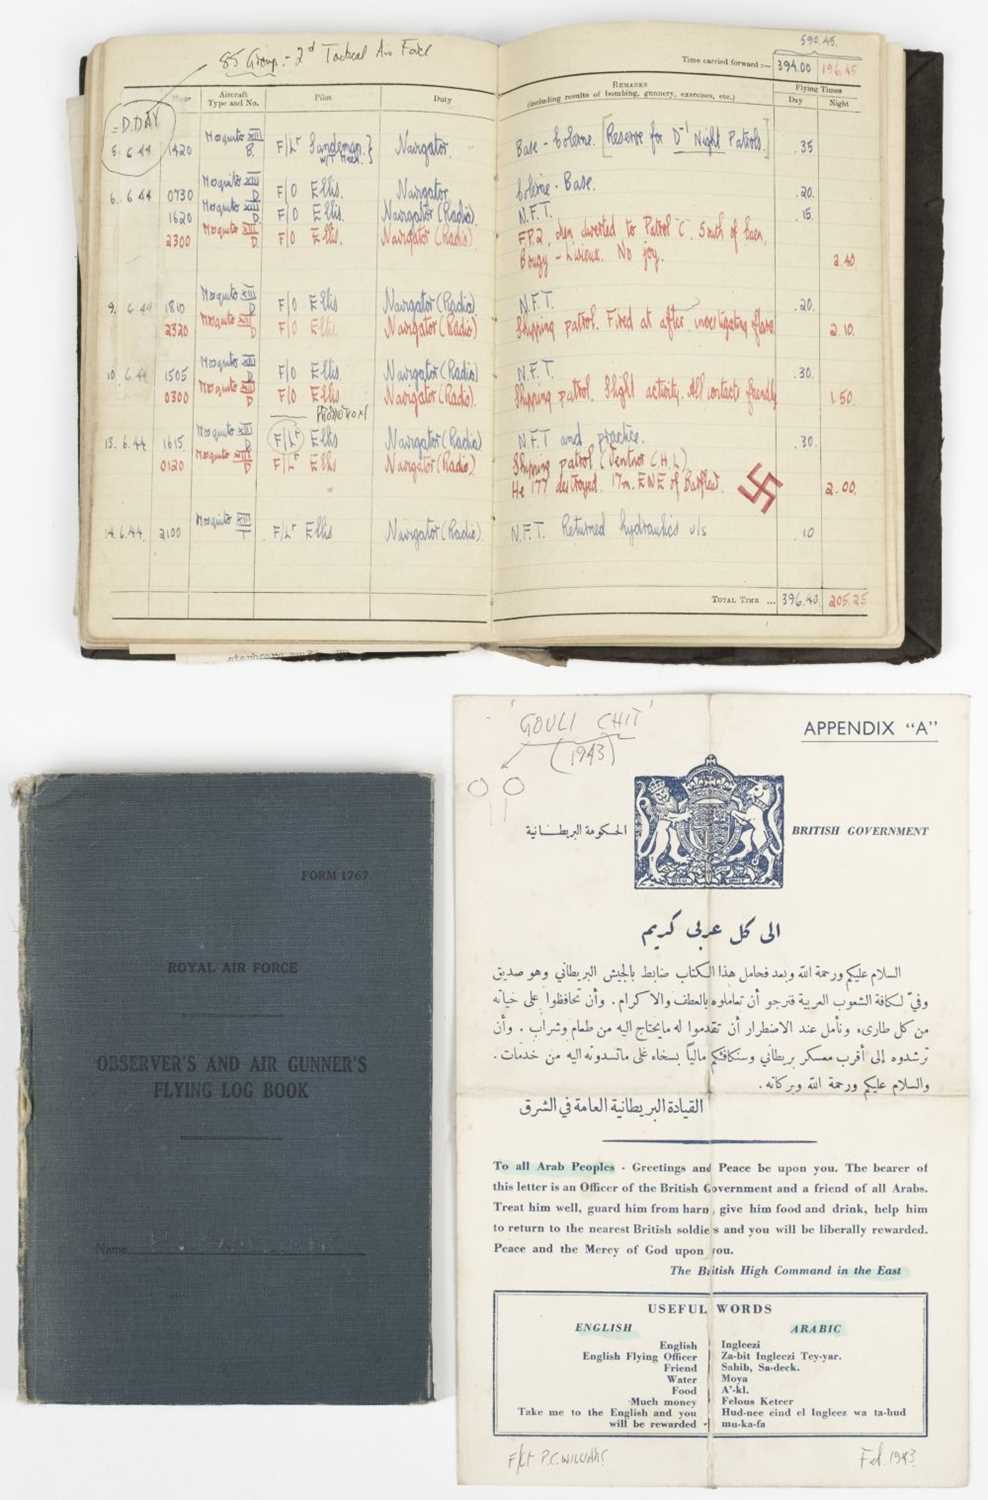 85 Group :- 2d Tactical Air Force
590.45.
Time carried forward :— 394.00 196.45
Hour Aircraft Type and No. Pilot Duty Remarks (including results of bombing, gunnery, exercises, etc.) Flying Times Day Night
= D.DAY
5.6.44 1420 Mosquito XIII B. F/Lt Sandeman. W/T Mech. } Navigator. Base - Colerne. [Reserve for D-1 Night Patrols.] .35
6.6.44 0730 Mosquito XIII D F/O Ellis. Navigator Colerne - Base. .20.
1620 Mosquito XIII D F/O Ellis. Navigator (Radio). N.F.T. .15.
2300 Mosquito XIII D. F/O Ellis. Navigator (Radio). F.P.2, then diverted to Patrol 'C'. South of Caen,
Bougy - Lisieux. No joy. 2.40
9.6.44 1810 Mosquito XIII D F/O Ellis Navigator (Radio). N.F.T. .20.
2320 Mosquito XIII D F/O Ellis Navigator (Radio) Shipping patrol. Fired at after investigating flares 2.10.
10.6.44 1505 Mosquito XIII F/O Ellis. Navigator (Radio) N.F.T. .30.
0300 Mosquito XIII D F/O Ellis. Navigator (Radio). Shipping patrol. Slight activity. All contacts friendly 1.50.
PROMOTION
13.6.44 1615 Mosquito XIII D F/Lt Ellis Navigator (Radio) N.F.T and practice. .30.
0120 Mosquito XIII D F/Lt Ellis Navigator (Radio.) Shipping patrol (Ventnor C.H.L)
He 177 destroyed. 17m. ENE of Barfleur. 2.00.
14.6.44. 2100 Mosquito XIII F/Lt Ellis Navigator (Radio). N.F.T. Returned hydraulics u/s .10
Total Time ... 396.40. 205.25
FORM 1767
ROYAL AIR FORCE
OBSERVER'S AND AIR GUNNER'S
FLYING LOG BOOK
Name
'GOULI CHIT'
(1943)
APPENDIX "A"
الحكومة البريطانية
BRITISH GOVERNMENT
الى كل عربى كريم
السلام عليكم ورحمة الله وبعد فحامل هذا الكتاب ضابط بالجيش البريطاني وهو صديق
وفيّ لكافة الشعوب العربية فنرجو أن تعاملوه بالعطف والاكرام . وأن تحافظوا على حياته
من كل طارىء ونأمل عند الاضطرار أن تقدموا له مايحتاج اليه من طعام وشراب . وأن
ترشدوه إلى أقرب معسكر بريطاني وسنكافئكم ماليًا بسخاء على ماتسدونه اليه من خدمات .
والسلام عليكم ورحمة الله وبركاته .
القيادة البريطانية العامة في الشرق
To all Arab Peoples - Greetings and Peace be upon you. The bearer of
this letter is an Officer of the British Government and a friend of all Arabs.
Treat him well, guard him from harm, give him food and drink, help him
to return to the nearest British soldiers and you will be liberally rewarded.
Peace and the Mercy of God upon you.
The British High Command in the East
USEFUL WORDS
ENGLISH ARABIC
English Ingleezi
English Flying Officer Za-bit Ingleezi Tey-yar.
Friend Sahib, Sa-deek.
Water Moya
Food A'-kl.
Much money Felous Keteer
Take me to the English and you Hud-nee eind el Ingleez wa ta-hud
will be rewarded mu-ka-fa
F/Lt P.C. WILLIAMS
Feb. 1943